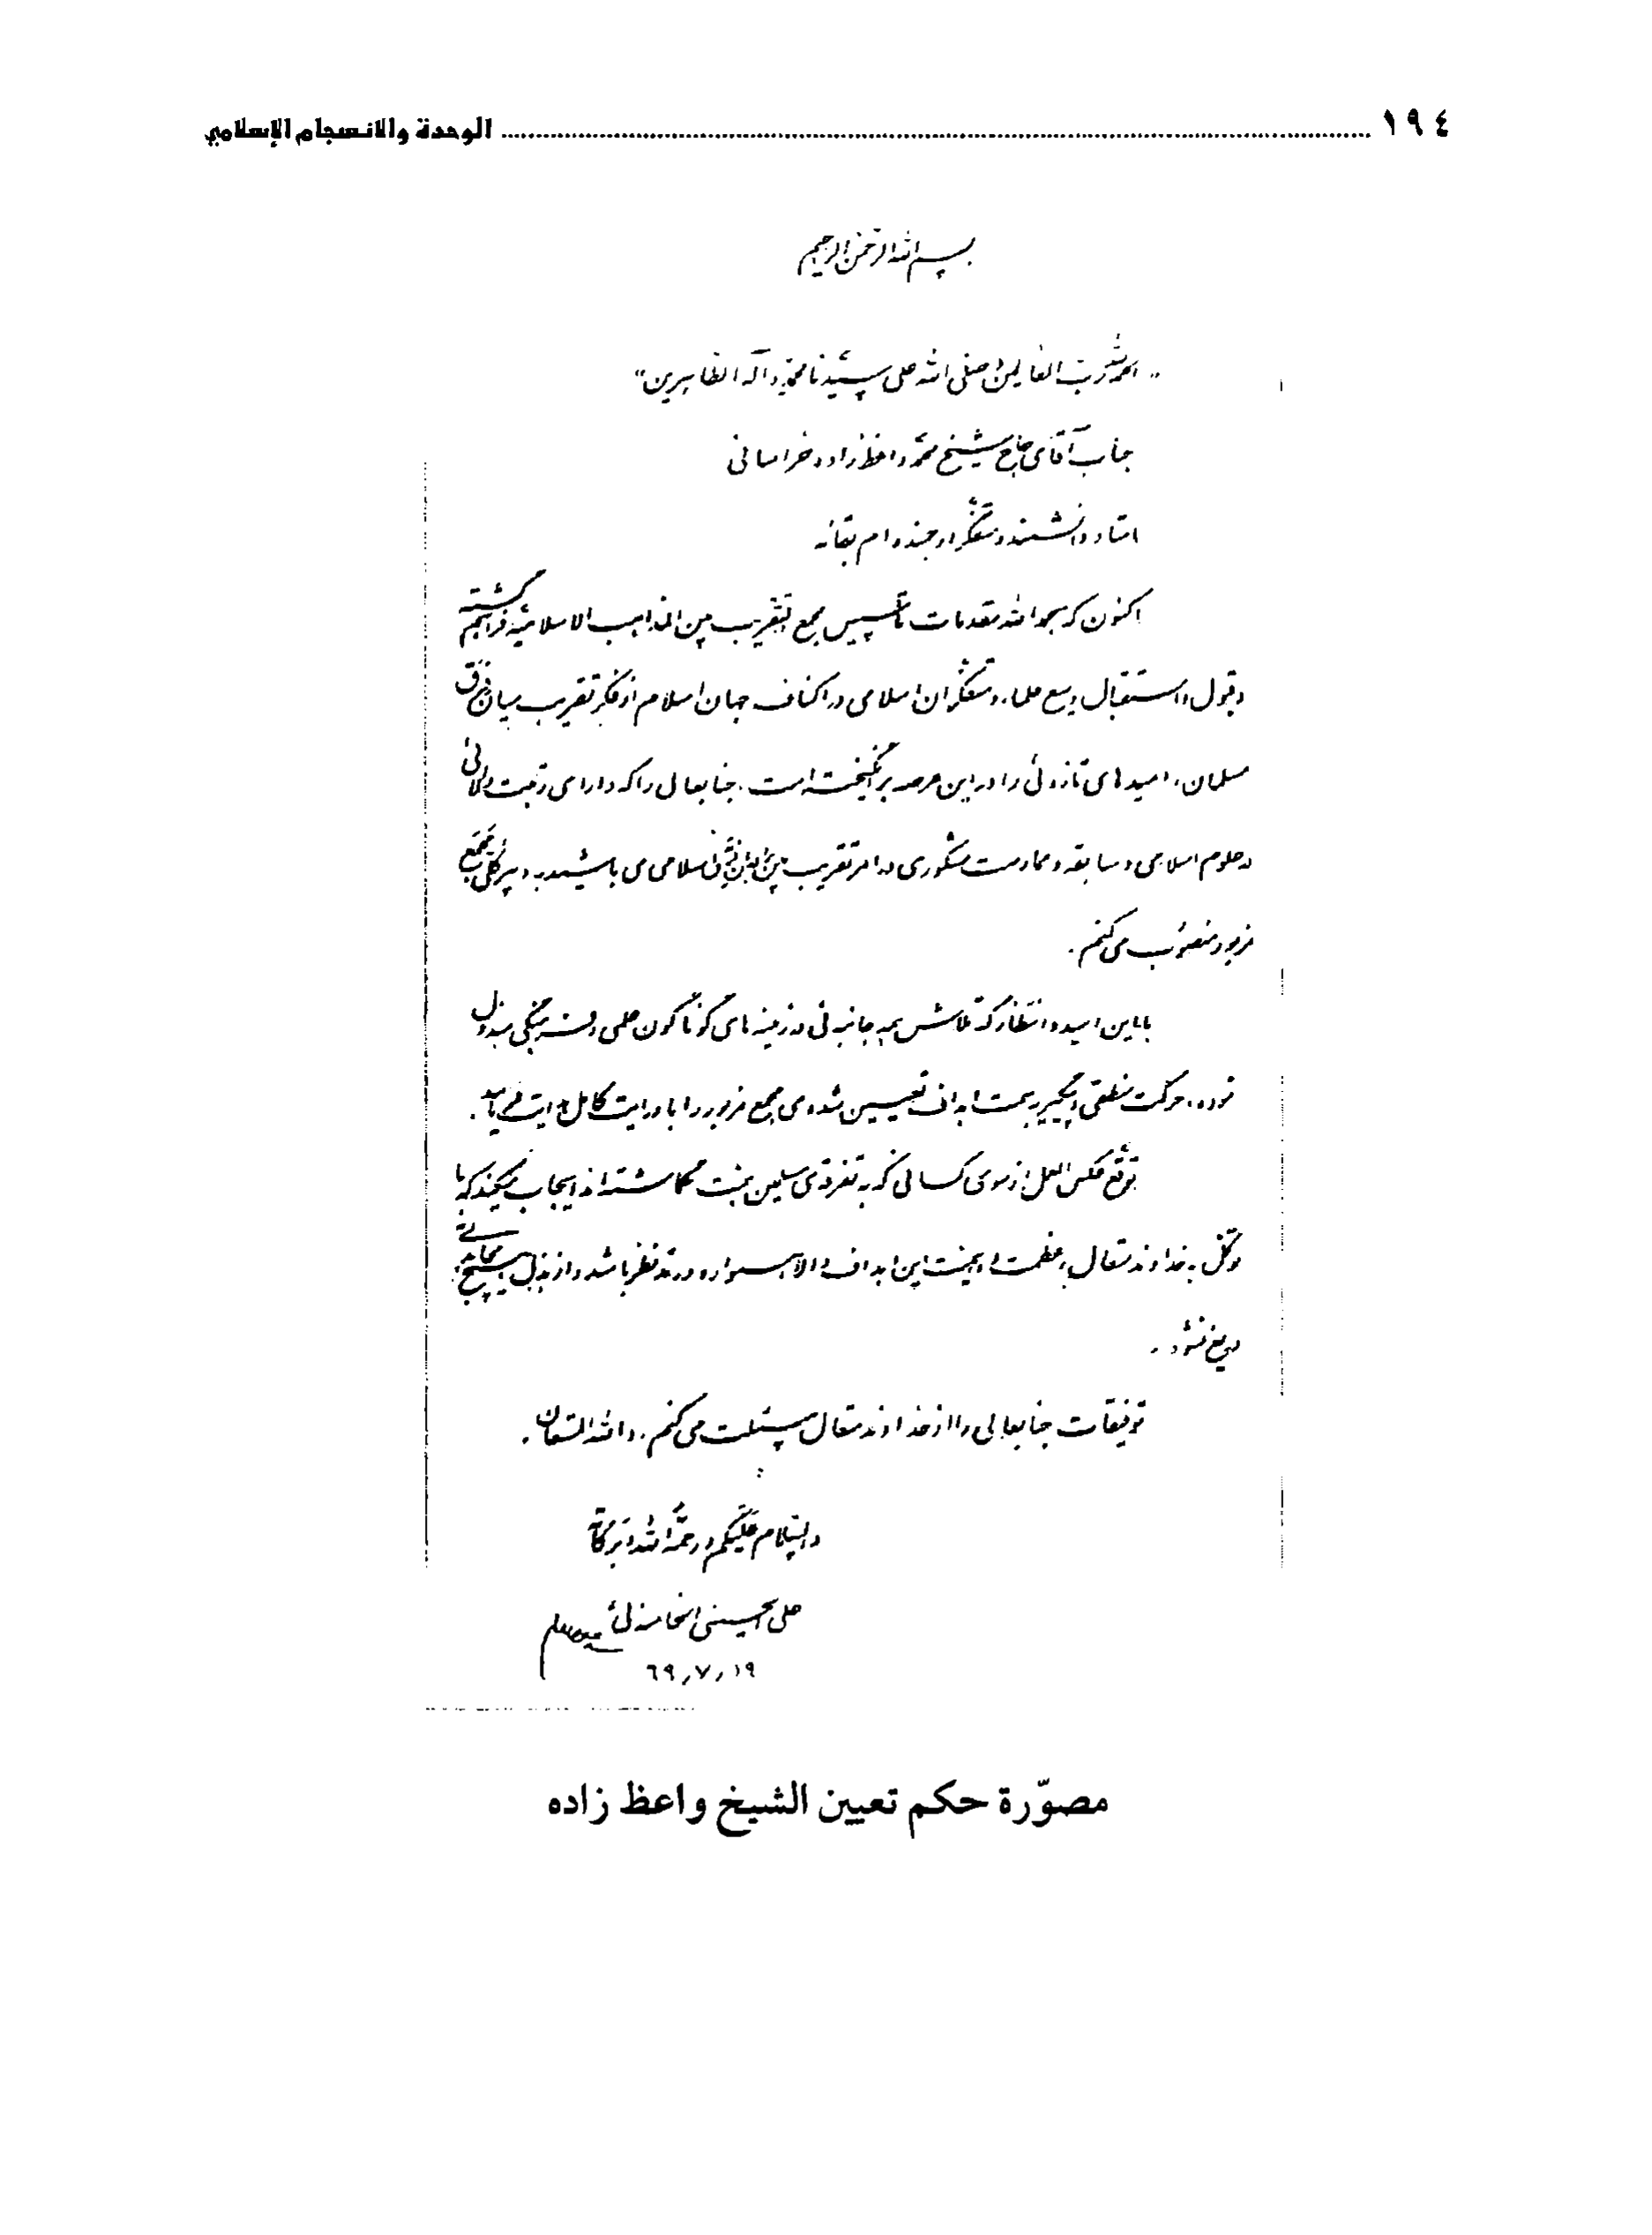 ١٩٤ ........ الوحدة والانسجام الإسلامي
بسم الله الرحمن الرحیم
"الحمد لله رب العالمین و صلی الله علی سیدنا محمد و آله الطاهرین"
جناب آقای حاج شیخ محمد واعظ زاده خراسانی
استاد دانشمند و متفکر ارجمند دام بقائه
اکنون که بحمدالله مقدمات تأسیس مجمع التقریب بین المذاهب الاسلامیة فراهم گشته
و قبول و استقبال وسیع علماء و متفکران اسلامی در اکناف جهان اسلام از فکر تقریب میان فِرَق
مسلمان، امیدهای تازه‌ئی را در این عرصه برانگیخته است، جنابعالی را که دارای رتبت والائی
در علوم اسلامی و سابقه و ممارست مشکوری در امر تقریب بین مذاهب اسلامی می باشید به دبیر کلی مجمع
مزبور منصوب می کنم.
با این امید و انتظار که تلاش همه جانبه ئی در زمینه های گوناگون علمی و فرهنگی مبذول
نموده، حرکت منطقی و پیگیر بسمت اهداف تعیین شده‌ی مجمع مزبور را با درایت کامل هدایت فرمایید.
توقع عکس العمل از سوی کسانی که به تفرقه‌ی مسلمین همت گماشته اند ایجاب میکند که با
توکل به خداوند متعال، عظمت و اهمیت این اهداف والا همواره در مد نظر باشد و از بذل هیچ مجاهدتی
دریغ نشود.
توفیقات جنابعالی را از خداوند متعال مسئلت می کنم. والله المستعان.
والسلام علیکم و رحمة الله و برکاته
علی الحسینی الخامنه‌ئی
٦٩/٧/١٩
مصوّرة حكم تعيين الشيخ واعظ زاده